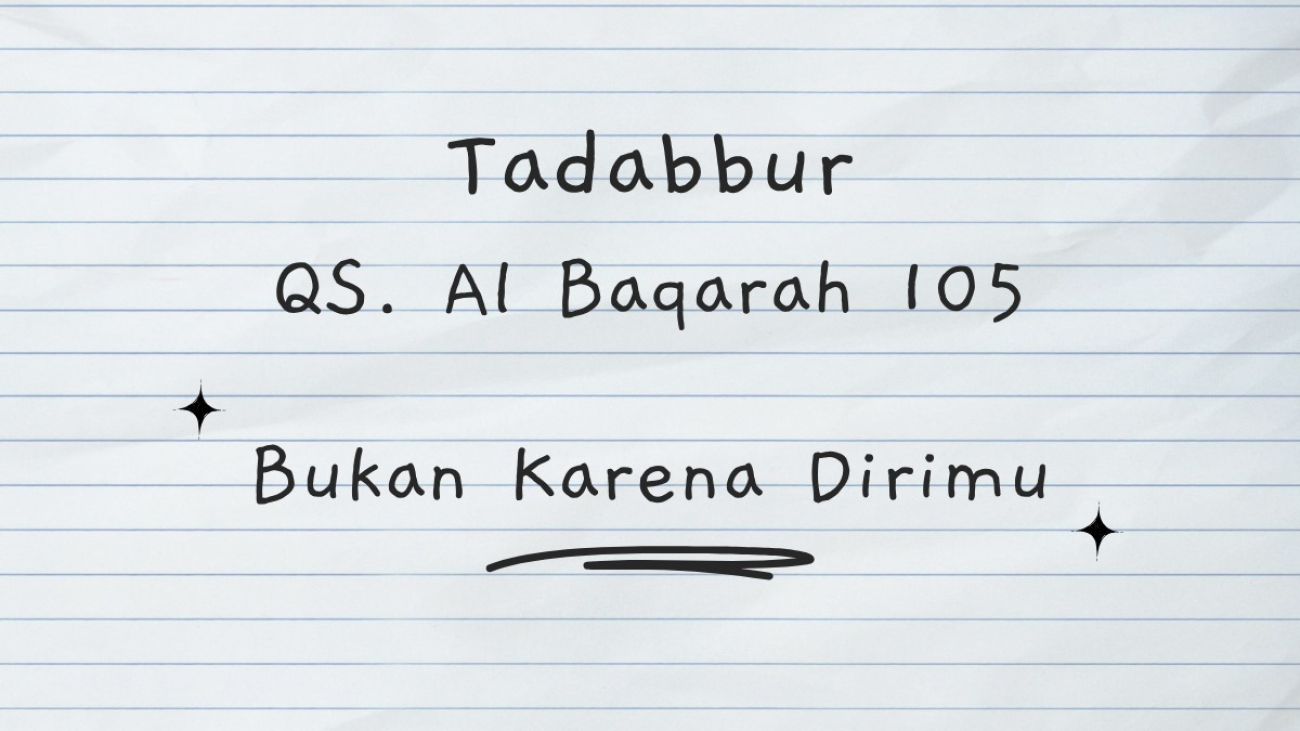 Tadabbur
QS. Al Baqarah 105
Bukan Karena Dirimu